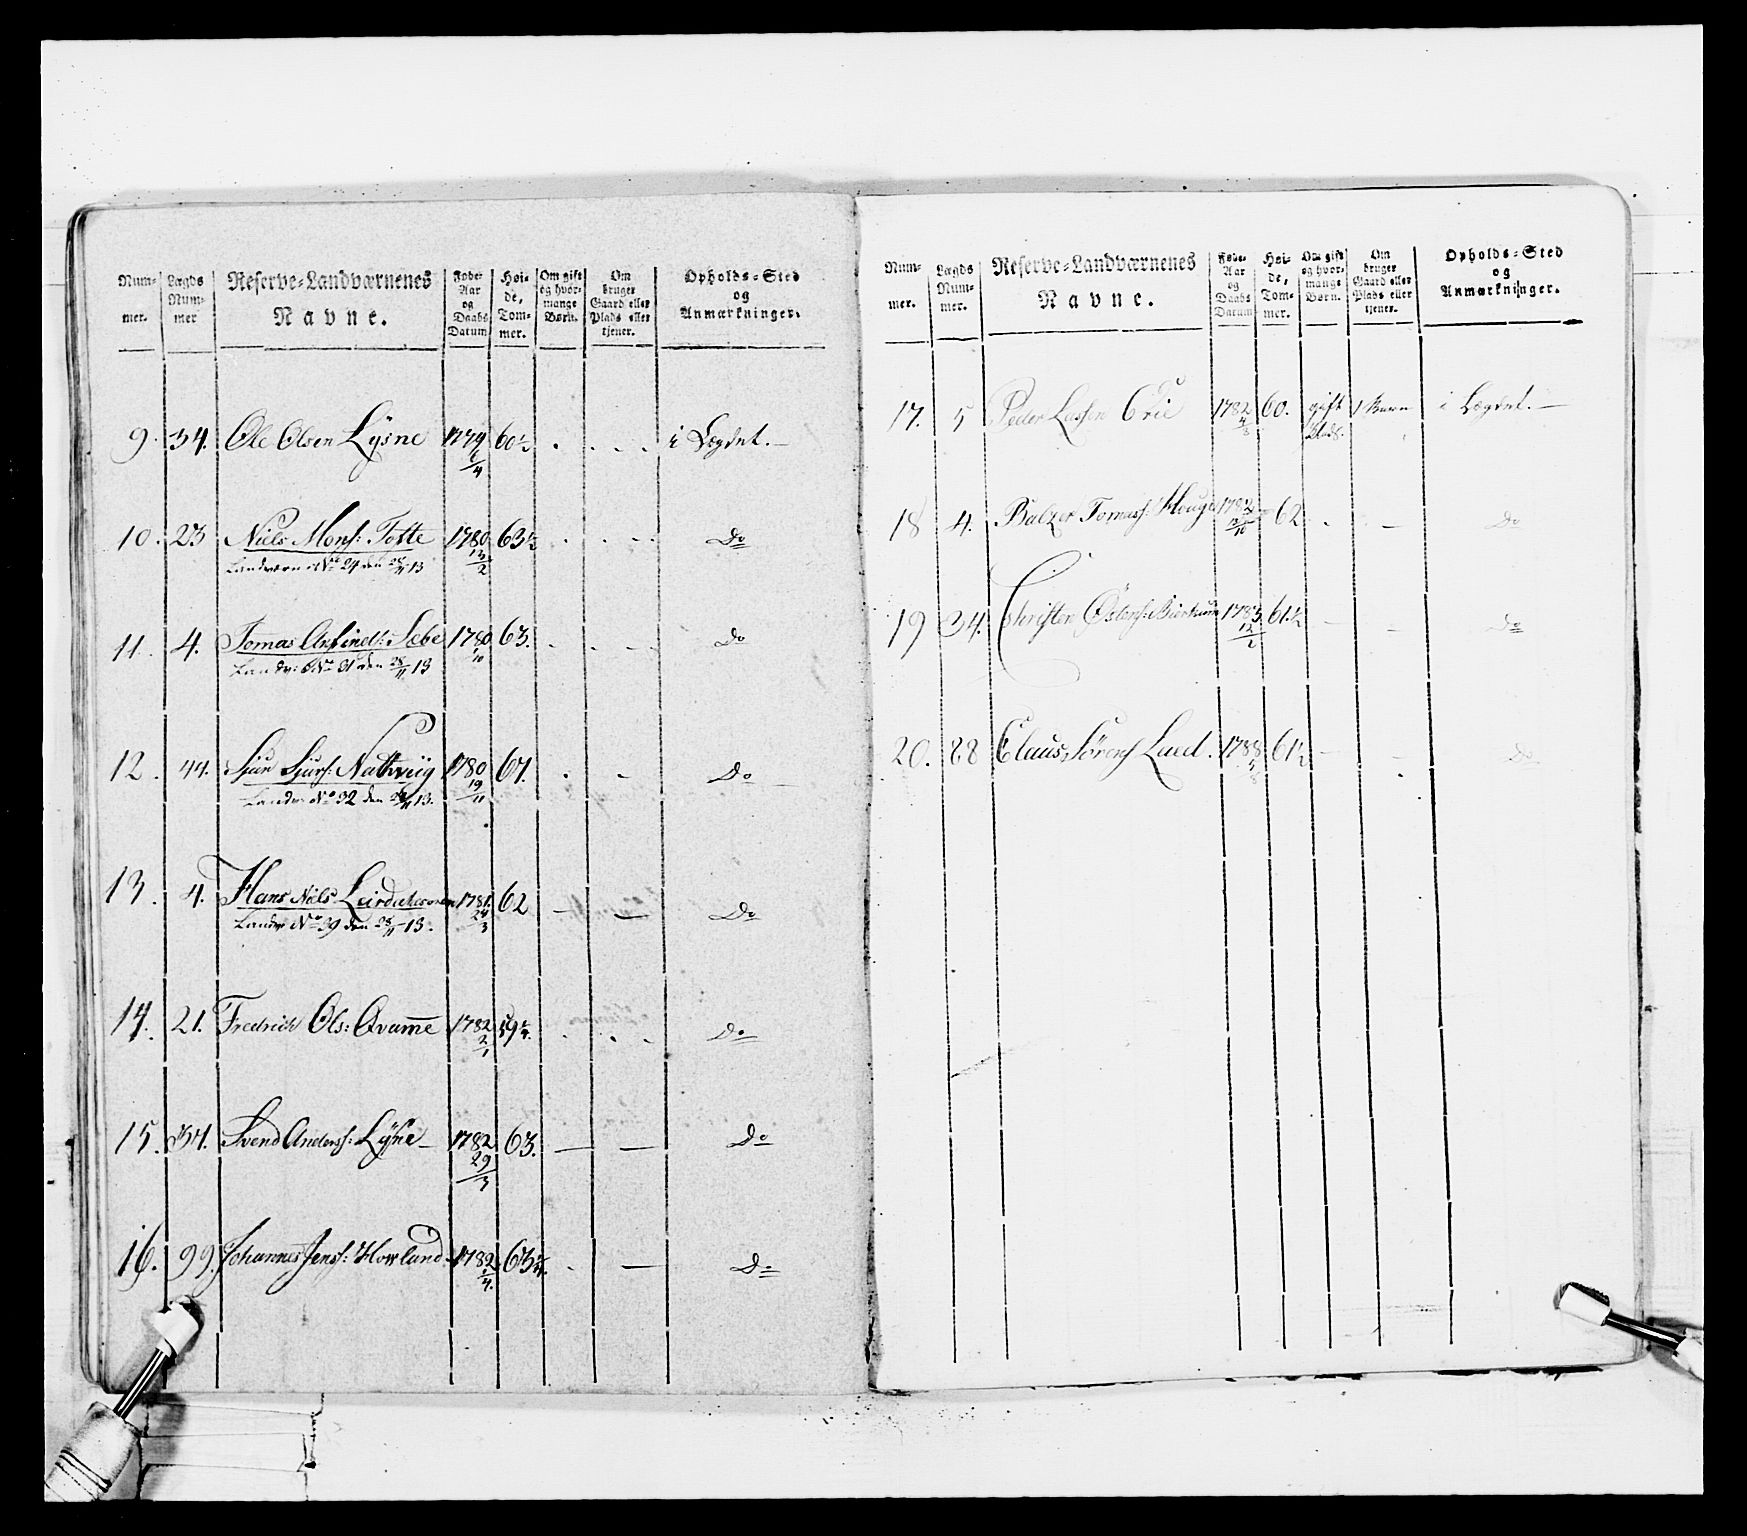 Num- mer. Lægds Num- mer Reserve-Landværnenes Navne. Føde- Aar og Daabs Datum Høi- de, Tom- mer. Om gift og hvor- mange Børn. Om bruger Gaard eller Plads eller tjener. Opholds-Sted og Anmærkninger.
9. 34. Ole Olsen Lysne 1779 6/4 60½ i Lægdet.
10. 23 Niels Mons: Totte 1780 13/2 63½ Do
Landværn No 24 den 28/11 13
11. 4. Tomas Arfindt: Sebe 1780 1/10 63. Do
Landv: No 31 den 28/11 13
12. 44. Siur Siurs: Nathviig 1780 19/11 61. Do
Landv: No 32 den 28/11 13.
13. 4. Hans Niels 1781. 24/3 62 Do
Landv No 39 den 28/11 13.
14. 21. Fredrich Ols: Qvamme 1782 2/1 59¼. Do
15. 34. Svend Anders: Lysne 1782 29/3 63. Do
16. 99. Johannes Jens: Howland 1782 1/4. 63¼. Do
Num- mer. Lægds Num- mer. Reserve-Landværnenes Navne. Føde- Aar og Daabs Datum Høi- de, Tom- mer. Om gift og hvor- mange Børn. Om bruger Gaard eller Plads eller tjener. Opholds-Sted og Anmærkninger.
17. 5 Peder Lassen 1782 4/8 60. gift 1 Barn i Lægdet.
18 4. Balzer Tomass: Houge 1782 13/10 62 Do
19 34. Christen 1783 12/2 61½ Do
20. 88 Claus Sörens Lund. 1788 61½ Do